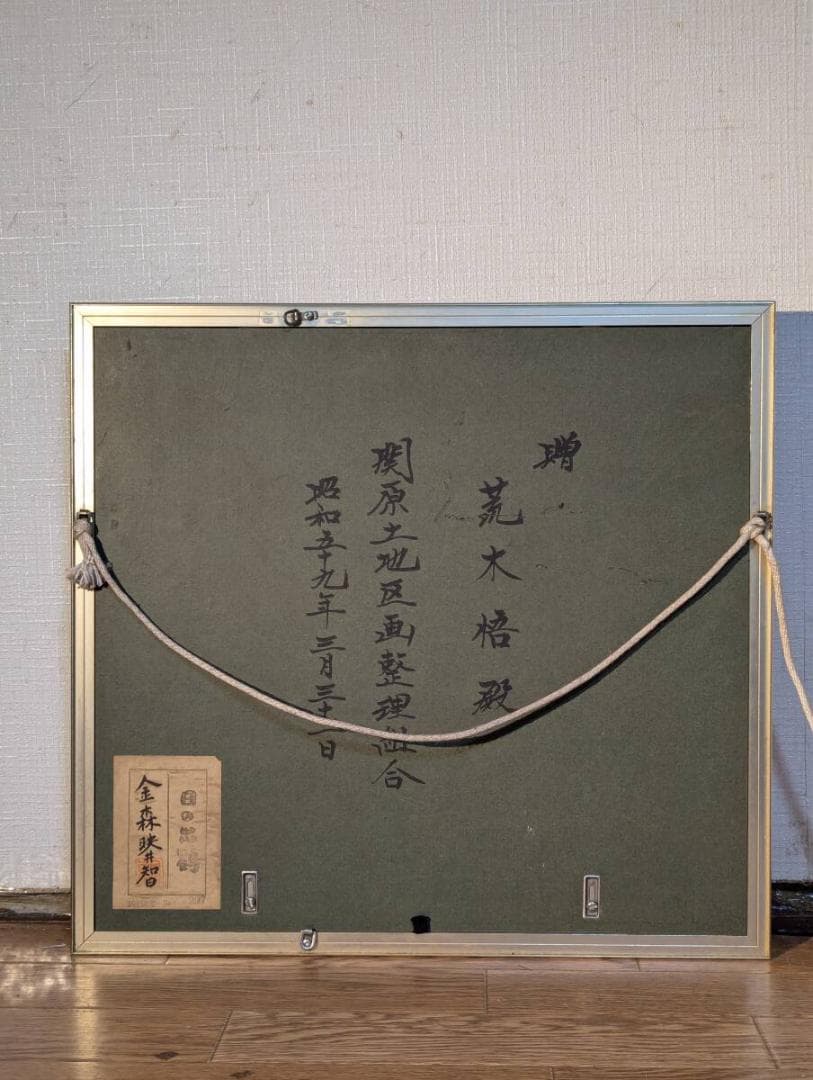 贈
荒木悟殿
関原土地区画整理組合
昭和五十九年三月三十一日
日の出鶴
金森映井智